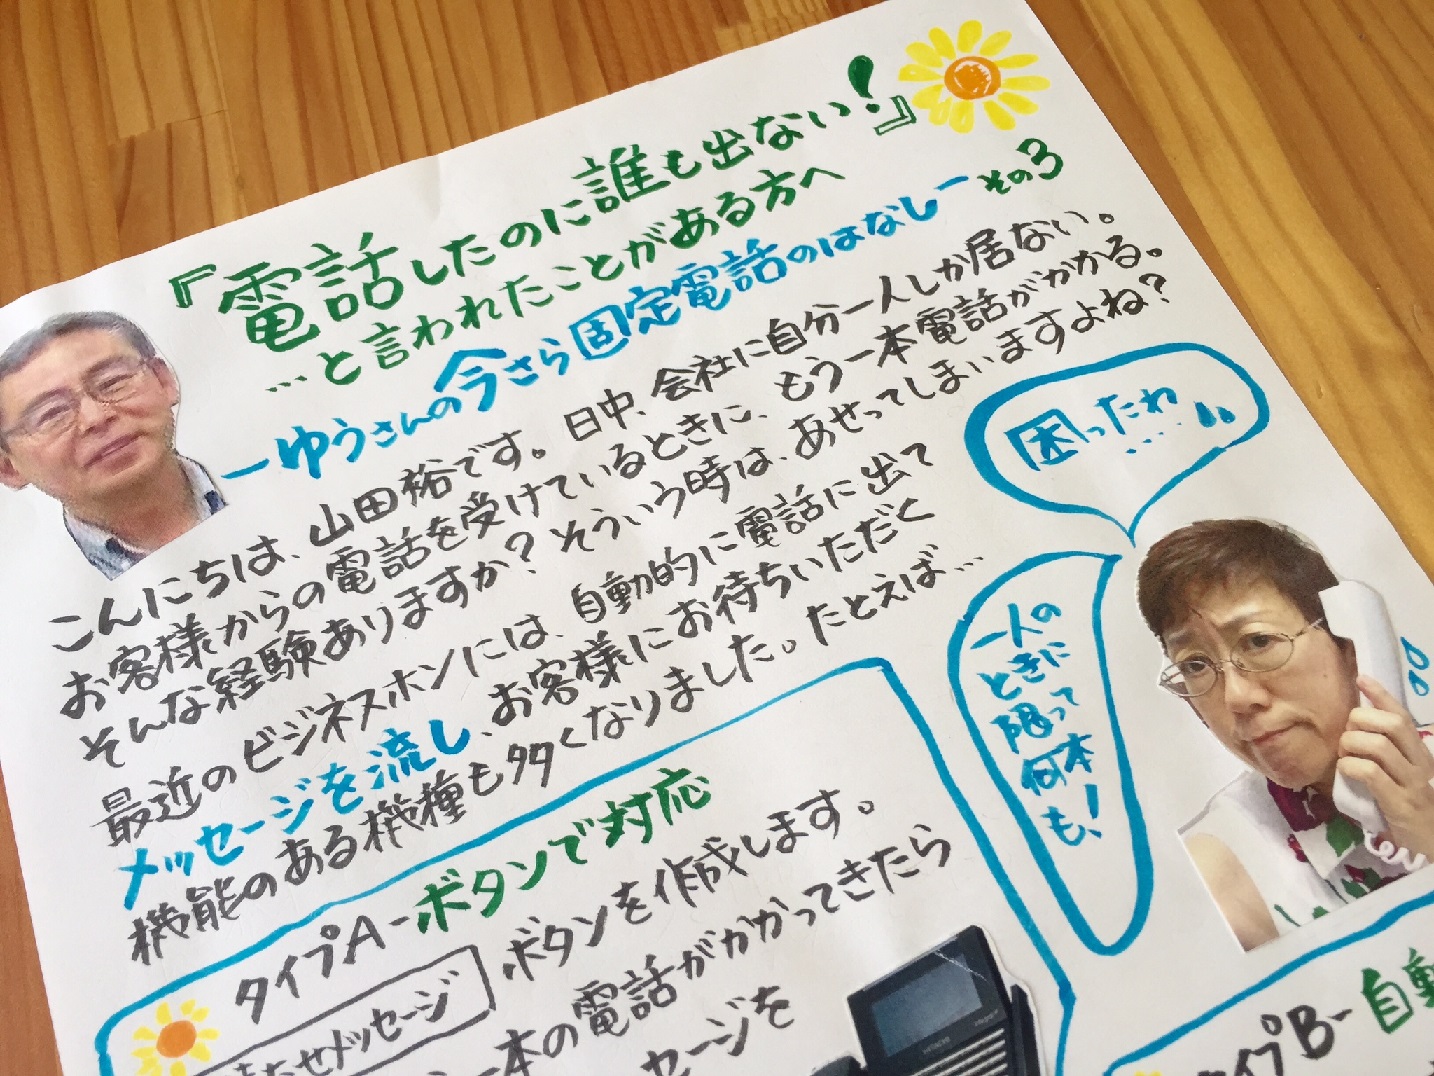 『電話したのに誰も出ない！』
…と言われたことがある方へ
ーゆうさんの今さら固定電話のはなしー その3
こんにちは、山田裕です。日中、会社に自分一人しか居ない。
お客様からの電話を受けているときに、もう一本電話がかかる。
そんな経験ありますか？そういう時は、あせってしまいますよね？
最近のビジネスホンには、自動的に電話に出て
メッセージを流し、お客様にお待ちいただく
機能のある機種も多くなりました。たとえば…
困ったわ
……
一人の
ときに
限って
何本
も！
タイプA-ボタンで対応
たせメッセージ ボタンを作成します。
一本の電話がかかってきたら
セージを
HITACHI
イプB-自動